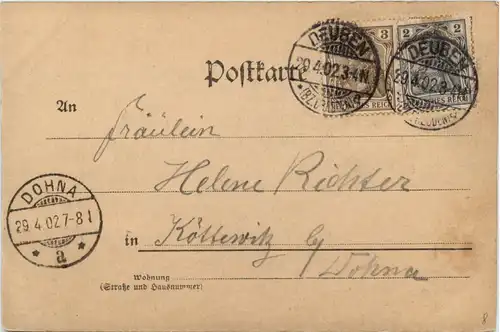 3 2
DEUBEN DEUBEN
29.4.02.3-4N 29.4.02.3-4N
Postkarte
An
Fräulein
Helene Richter
DOHNA
29.4.02.7-8
a
in Köttewitz by
Dohna
Wohnung
(Straße und Hausnummer)
8